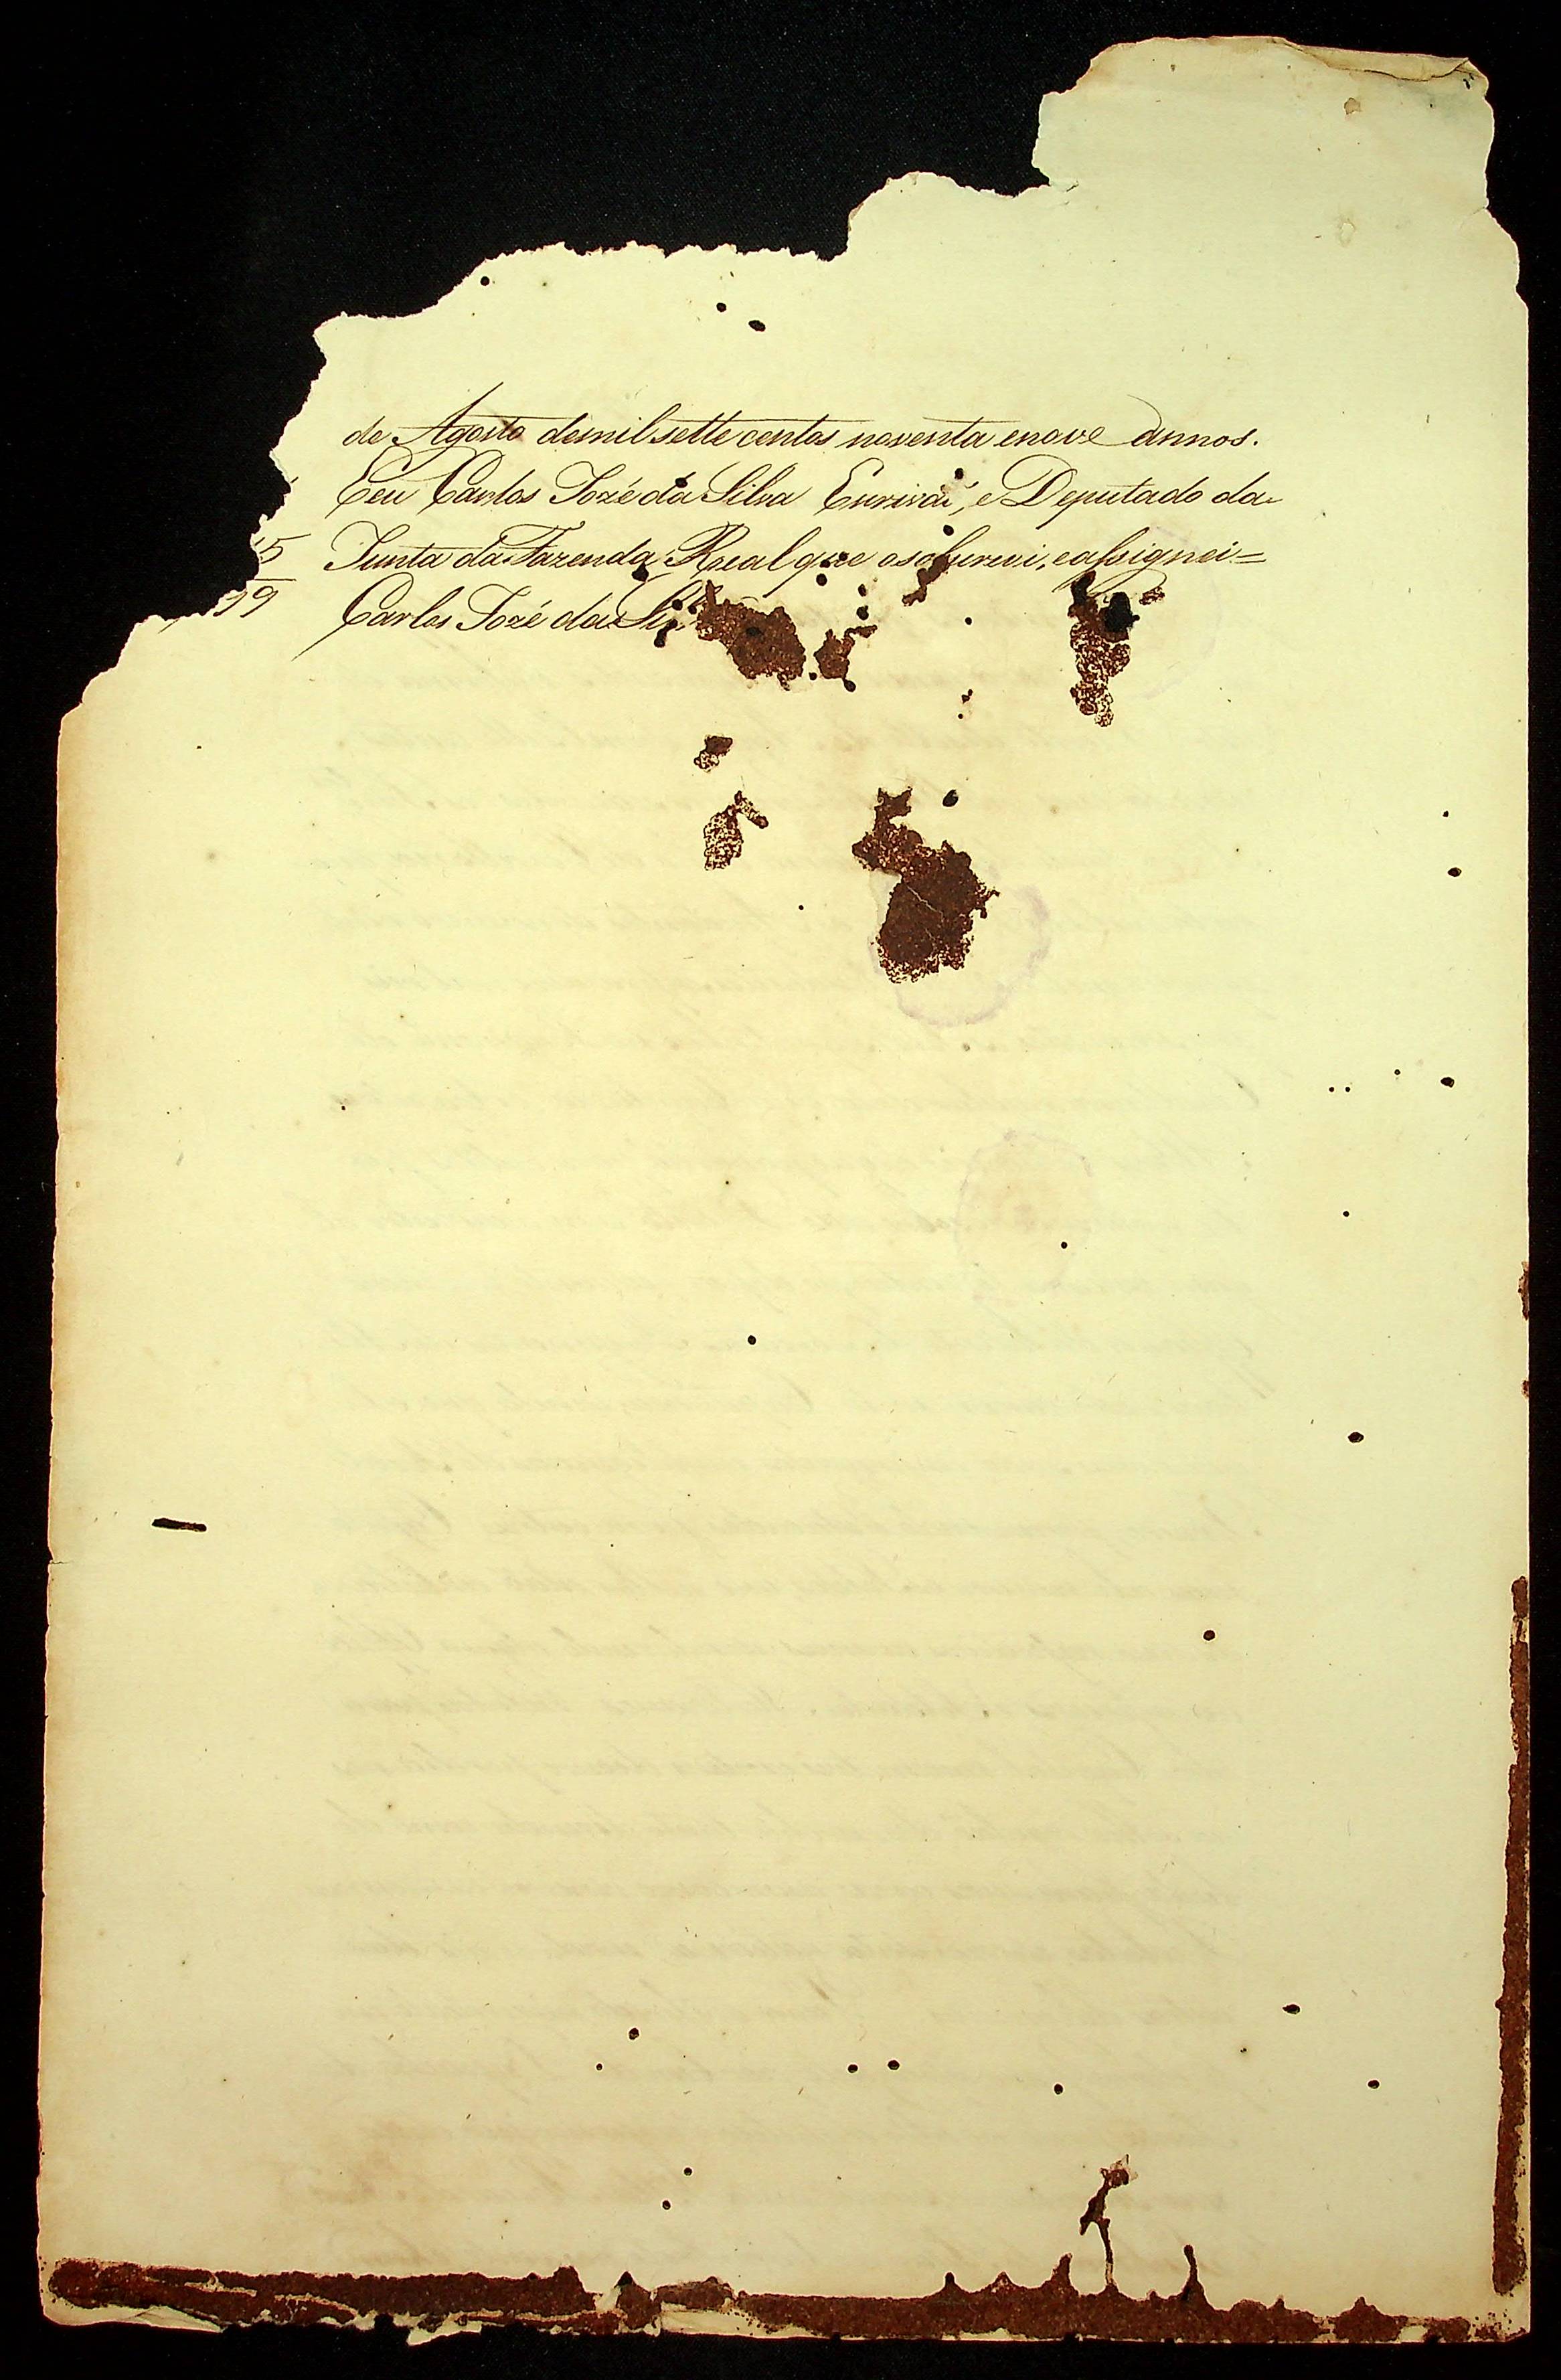 de Agosto demil sette centos noventa enove annos.
Eeu Carlos Jozé da Silva Escrivaõ, e Deputado da
5 Junta da Fazenda Real que osobscrevi, eassignei=
99 Carlos Jozé da